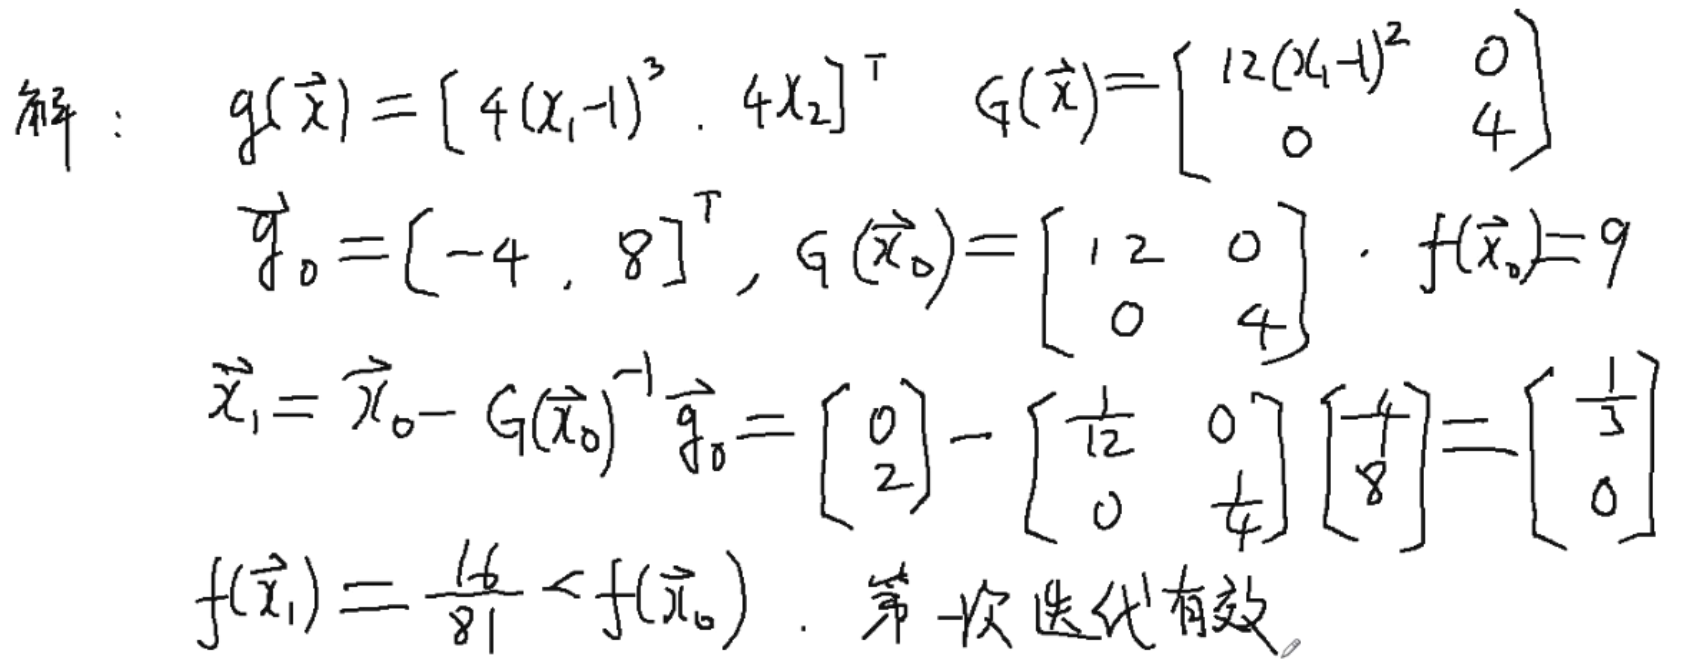 解： g(x⃗) = [4(x₁-1)³ . 4x₂]ᵀ G(x⃗) = [12(x₁-1)² 0; 0 4]
g⃗₀ = [-4 . 8]ᵀ, G(x⃗₀) = [12 0; 0 4] . f(x⃗₀) = 9
x⃗₁ = x⃗₀ - G(x⃗₀)⁻¹ g⃗₀ = [0; 2] - [1/12 0; 0 1/4] [-4; 8] = [1/3; 0]
f(x⃗₁) = 16/81 < f(x⃗₀) . 第一次迭代有效